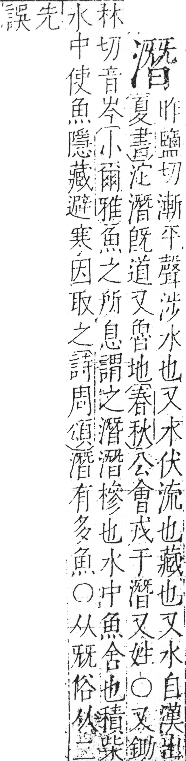 潛
昨鹽切漸平聲涉水也又水伏流也藏也又水自漢出
夏書沱潛旣道又魯地春秋公會戎于潛又姓○又鋤
林切音岑小爾雅魚之所息謂之潛潛槮也水中魚舍也積柴
水中使魚隱藏避寒因取之詩周頌潛有多魚○从旡俗从二
先
誤